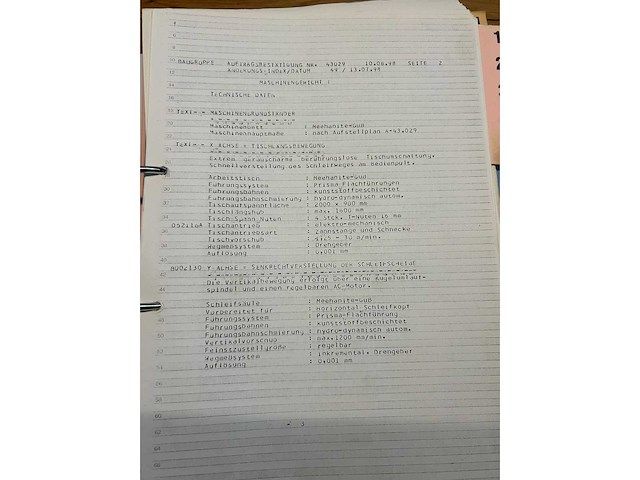 BAUGRUPPE AUFTRAGSBESTÄTIGUNG NR. 43029 10.06.98 SEITE 2
ÄNDERUNGS-INDEX/DATUM 49 / 13.07.98
MASCHINENGEWICHT :
TECHNISCHE DATEN
TEXT-- MASCHINENGRUNDSTÄNDER
Maschinenbett : Meehanite-Guß
Maschinenhauptmaße : nach Aufstellplan A-43.029
TEXT-- X-ACHSE = TISCHLÄNGSBEWEGUNG
Extrem geräuscharme berührungslose Tischumschaltung.
Schnellverstellung des Schleifweges am Bedienpult.
Arbeitstisch : Meehanite-Guß
Führungssystem : Prisma-Flachführungen
Führungsbahnen : Kunststoffbeschichtet
Führungsbahnschmierung : hydro-dynamisch autom.
Tischaufspannfläche : 2000 x 900 mm
Tischlängshub : max. 1600 mm
Tisch-Spann Nuten : 4 Stck. T-Nuten 18 mm
Tischantrieb : elektro-mechanisch
Tischantriebsart : Zahnstange und Schnecke
Tischvorschub : - 30 m/min.
Wegmeßsystem : Drehgeber
Auflösung : 0,001 mm
BU02130 Y-ACHSE = SENKRECHTVERSTELLUNG DER SCHLEIFSCHEIBE
Die Vertikalbewegung erfolgt über eine Kugelumlauf-
spindel und einen regelbaren AC-Motor.
Schleifsäule : Meehanite-Guß
Vorbereitet für : Horizontal-Schleifkopf
Führungssystem : Prisma-Flachführung
Führungsbahnen : Kunststoffbeschichtet
Führungsbahnschmierung : hydro-dynamisch autom.
Vertikalvorschub : max.1200 mm/min.
Feinstzustellgröße : regelbar
Wegmeßsystem : inkremental, Drehgeber
Auflösung : 0,001 mm
- 3